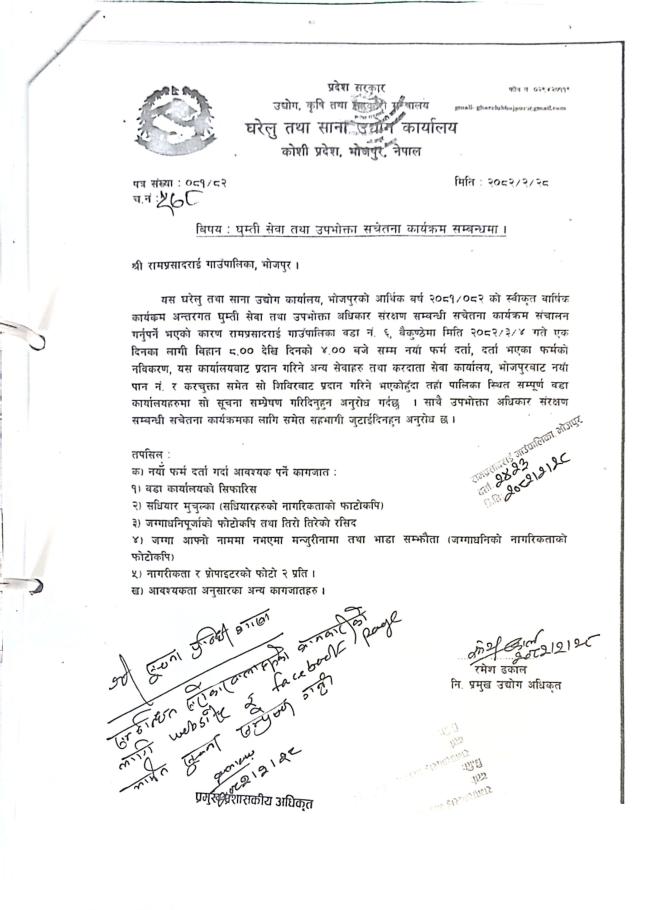 प्रदेश सरकार
उद्योग, कृषि तथा सहकारी मन्त्रालय
घरेलु तथा साना उद्योग कार्यालय
कोशी प्रदेश, भोजपुर, नेपाल
फोन नं
पत्र संख्या : ०८१/८२
मिति : २०८२/२/२८
च.नं :
विषय : घुम्ती सेवा तथा उपभोक्ता सचेतना कार्यक्रम सम्बन्धमा ।
श्री रामप्रसादराई गाउंपालिका, भोजपुर ।
यस घरेलु तथा साना उद्योग कार्यालय, भोजपुरको आर्थिक बर्ष २०८१/०८२ को स्वीकृत वार्षिक
कार्यकम अन्तरगत घुम्ती सेवा तथा उपभोक्ता अधिकार संरक्षण सम्वन्धी सचेतना कार्यक्रम संचालन
गर्नुपर्ने भएको कारण रामप्रसादराई गाउंपालिका वडा नं. ६, बैकुण्ठेमा मिति २०८२/३/४ गते एक
दिनका लागी बिहान ८.०० देखि दिनको ४.०० बजे सम्म नयां फर्म दर्ता, दर्ता भएका फर्मको
नविकरण, यस कार्यालयबाट प्रदान गरिने अन्य सेवाहरु तथा करदाता सेवा कार्यालय, भोजपुरबाट नयां
पान नं. र करचुक्ता समेत सो शिविरबाट प्रदान गरिने भएकोहुँदा तहां पालिका स्थित सम्पूर्ण वडा
कार्यालयहरुमा सो सूचना सम्प्रेषण गरिदिनुहुन अनुरोध गर्दछु । साथै उपभोक्ता अधिकार संरक्षण
सम्वन्धी सचेतना कार्यक्रमका लागि समेत सहभागी जुटाईदिनहुन अनुरोध छ ।
रामप्रसादराई गाउंपालिका, भोजपुर
दर्ता २४२३
मिति: २०८२/२/२८
तपसिल :
क) नयाँ फर्म दर्ता गर्दा आवश्यक पर्ने कागजात :
१) वडा कार्यालयको सिफारिस
२) सधियार मुचुल्का (सधियारहरुको नागरिकताको फाटोकपि)
३) जग्गाधनिपूर्जाको फोटोकपि तथा तिरो तिरेको रसिद
४) जग्गा आफ्नो नाममा नभएमा मन्जुरीनामा तथा भाडा सम्झौता (जग्गाधनिको नागरिकताको
फोटोकपि)
५) नागरीकता र प्रोपाइटरको फोटो २ प्रति ।
ख) आवश्यकता अनुसारका अन्य कागजातहरु ।
श्री सूचना प्रविधि शाखा
लागि website र facebook page
२०८२/२/२८
प्रमुख प्रशासकीय अधिकृत
२०८२/२/२८
रमेश ढकाल
नि. प्रमुख उद्योग अधिकृत